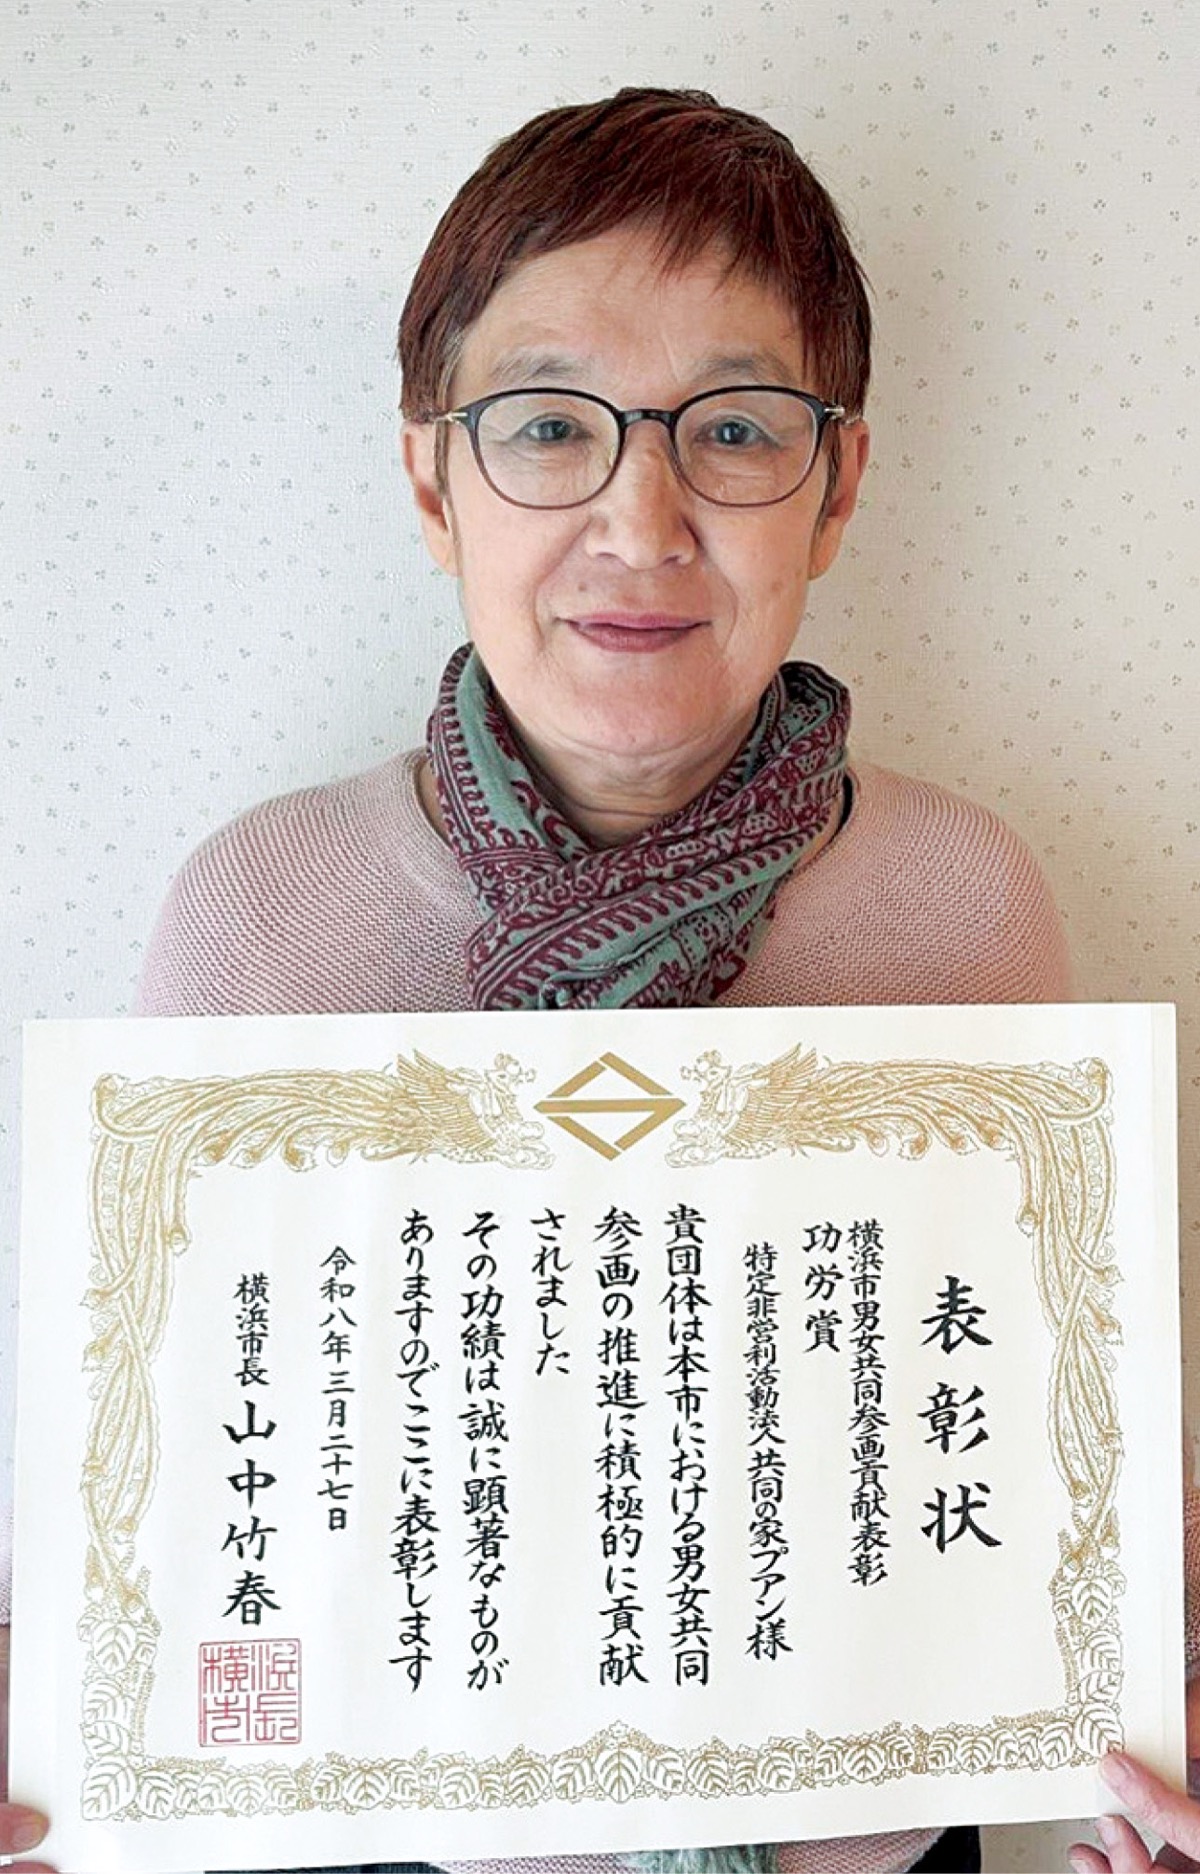 表彰状
横浜市男女共同参画貢献表彰
功労賞
特定非営利活動法人共同の家プアン様
貴団体は本市における男女共同
参画の推進に積極的に貢献
されました
その功績は誠に顕著なものが
ありますのでここに表彰します
令和八年三月二十七日
横浜市長 山中竹春